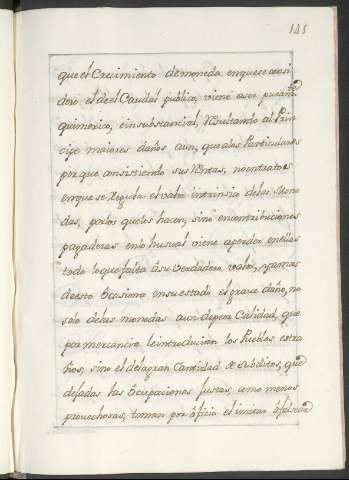 145
que el Crecimiento de moneda en que se consi
dero el de el Caudal público, viene a ser puramte
quimerico, e insubstancial, Resultando al Prin
cipe maiores daños aun, que a los Particulares
porque consistiendo sus Rentas, no en tratos
en que se Regula el valor intrinsico de las Mone
das, por los que les hacen, sino en contribuciones
pagaderas en lo husual viene a perder en ellas
todo lo que falta á su verdadero valor, y a mas
de esto Ocasiona en su estado el grave daño, no
solo de las monedas aun de peor Calidad, que
por mercancia le introducian los Pueblos estra
ños, sino el de la gran Cantidad de subditos, que
dejadas las Ocupaciones Justas, a mo menos
provechosas, toman por Oficio el imitar ó falsear